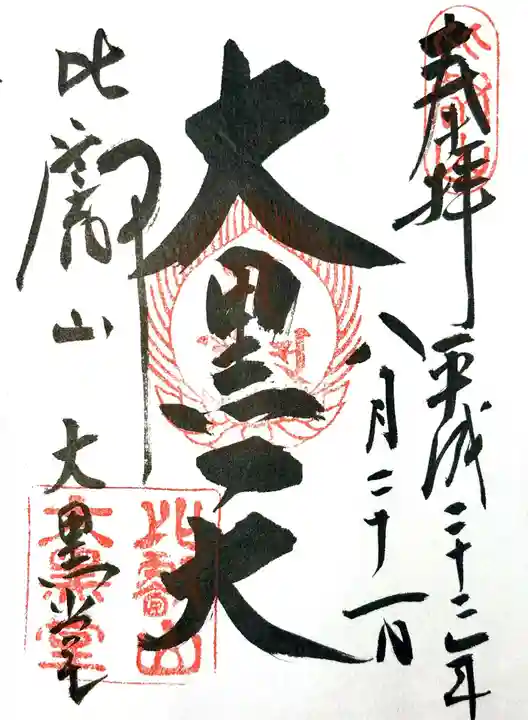 奉拝
平成二十二年
八月二十一日
大黒天
比叡山 大黒堂
比叡山
大黒堂